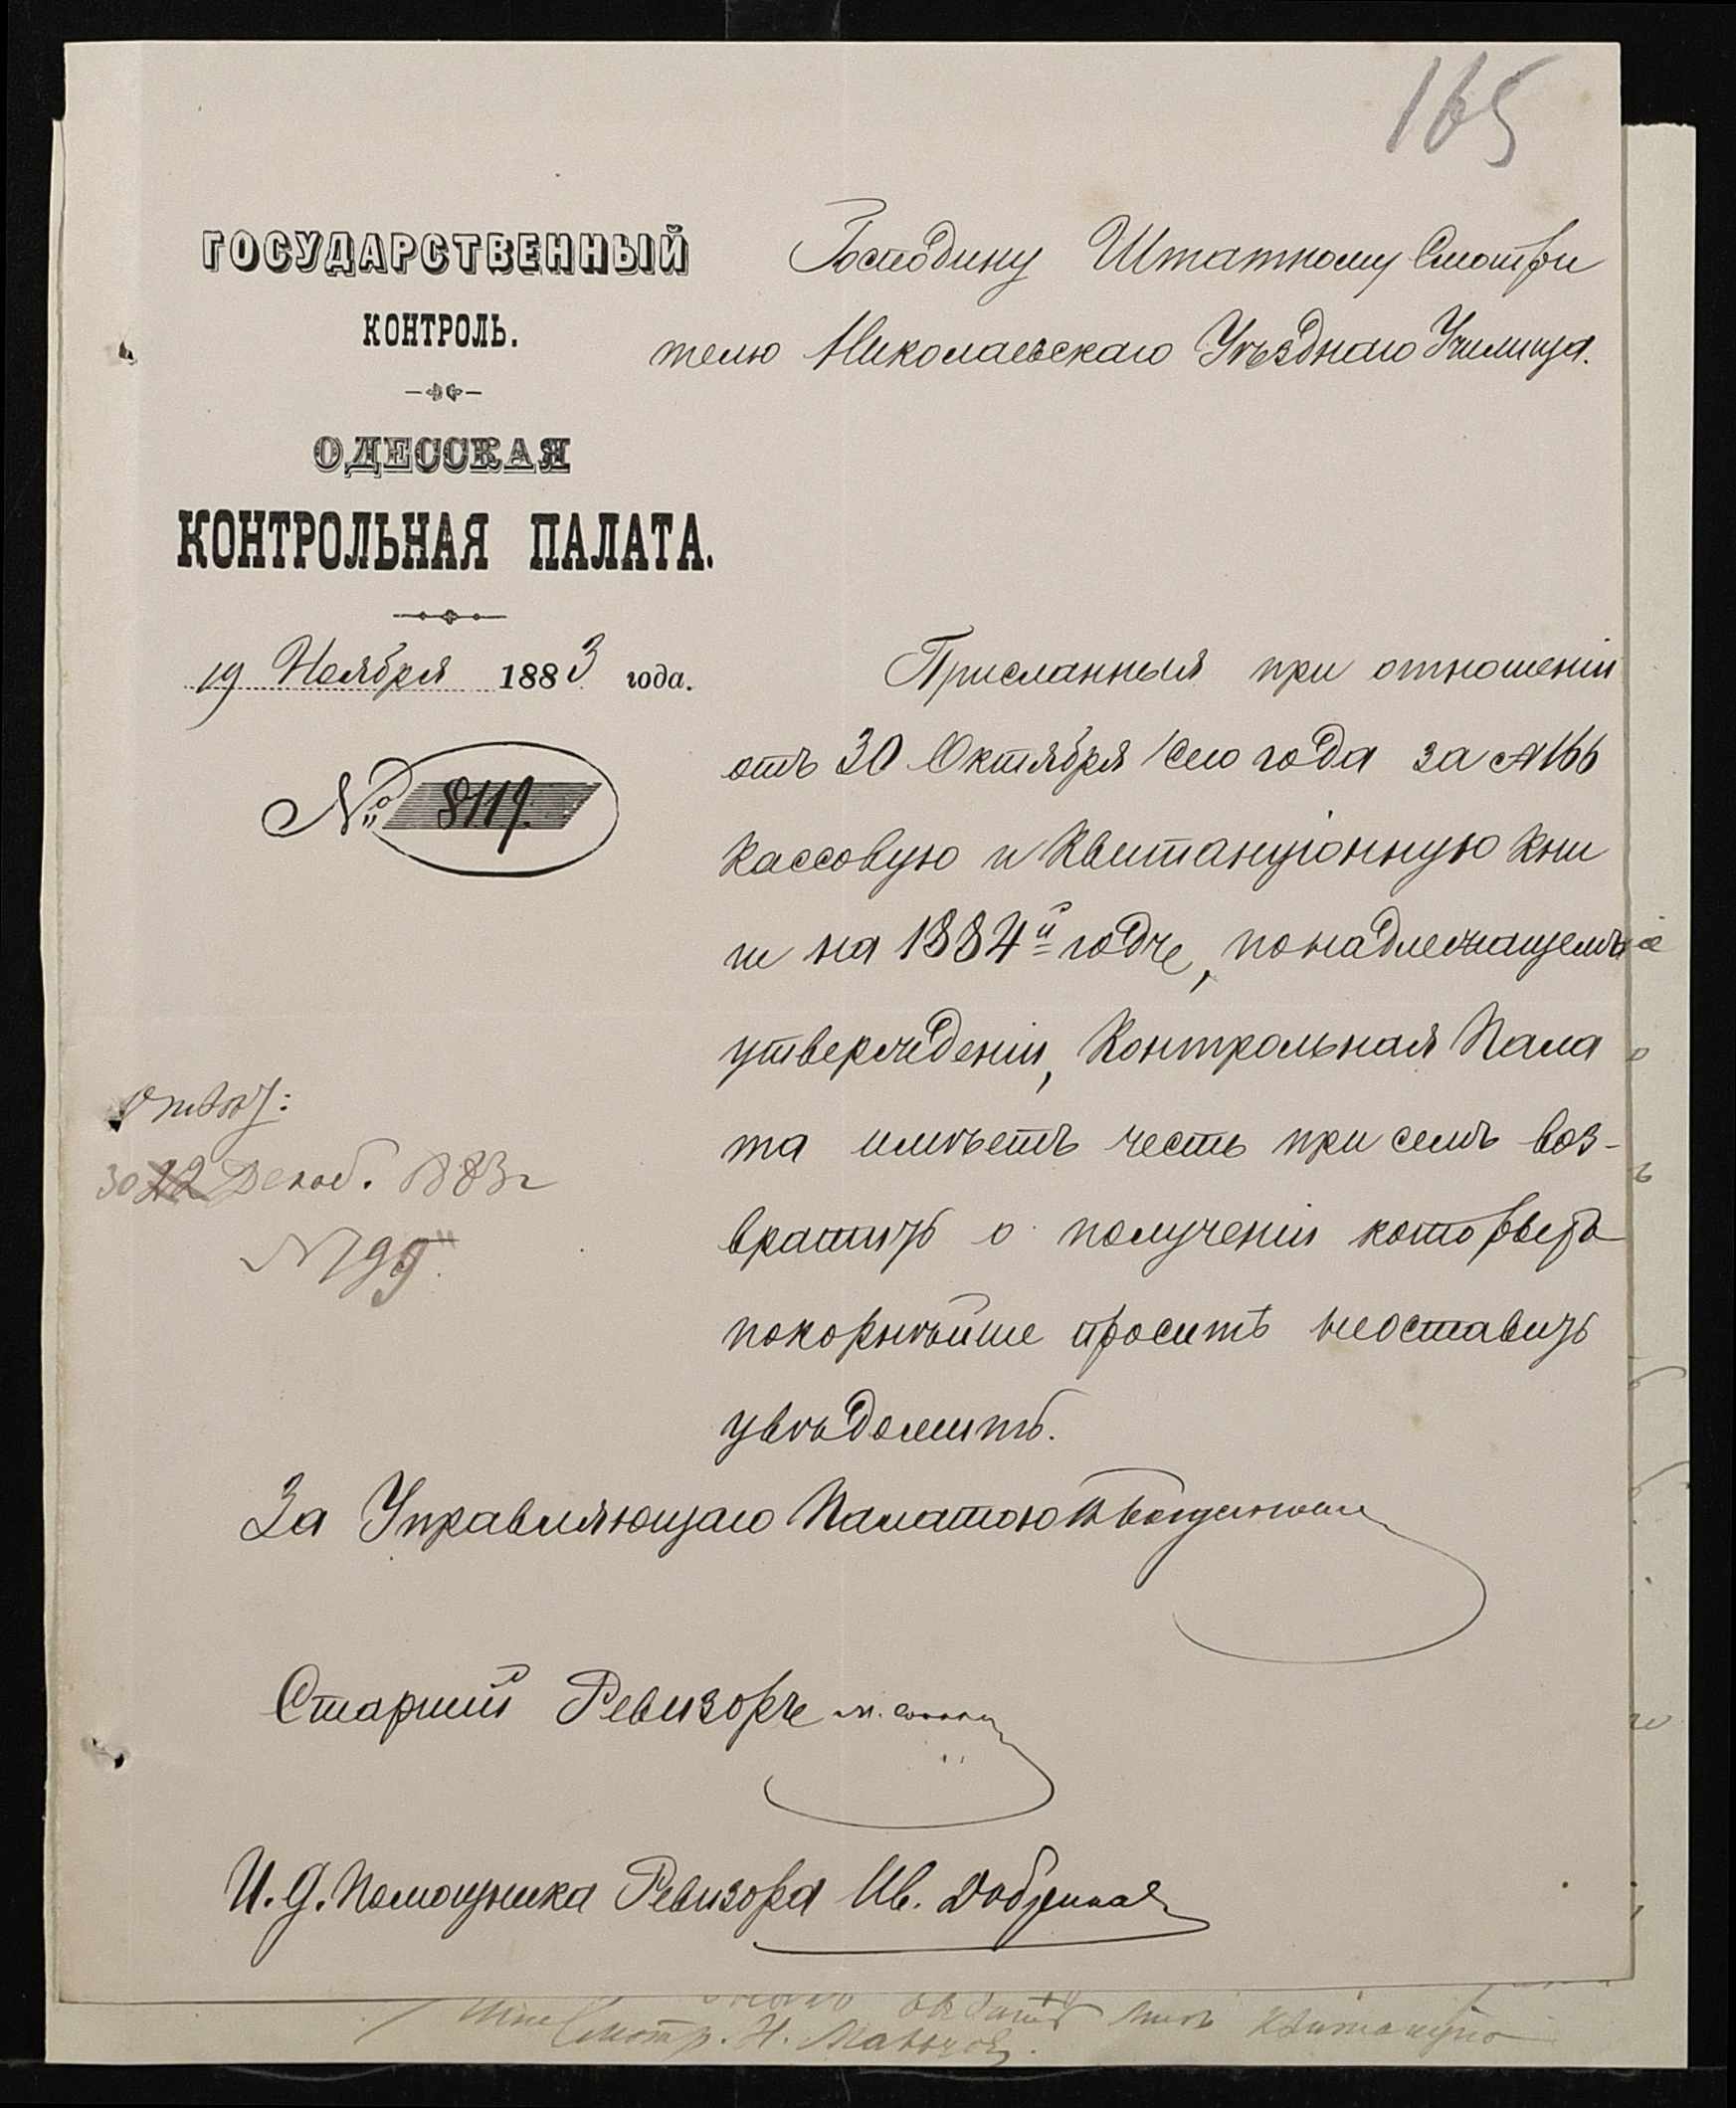 165
ГОСУДАРСТВЕННЫЙ
КОНТРОЛЬ.
ОДЕССКАЯ
КОНТРОЛЬНАЯ ПАЛАТА.
19 Ноября 1883 года.
№ 8119.
Господину Штатному Смотри
телю Николаевскаго Уѣзднаго Училища.
Присланныя при отношеніи
отъ 30 Октября сего года за № 166
Кассовую и Квитанціонную Кни
ги на 1884й годъ, по надлежащемъ
утвержденіи, Контрольная Пала
та имѣетъ честь при семъ воз-
вратить о полученіи которыхъ
покорнѣйше проситъ неоставить
увѣдомить.
Отвѣт:
30 22 Декаб. 1883 г
№ 99
За Управляющаго Палатою
Старшій Ревизоръ М.
И. д. Помощника Ревизора Ив.
Смотр. Н.